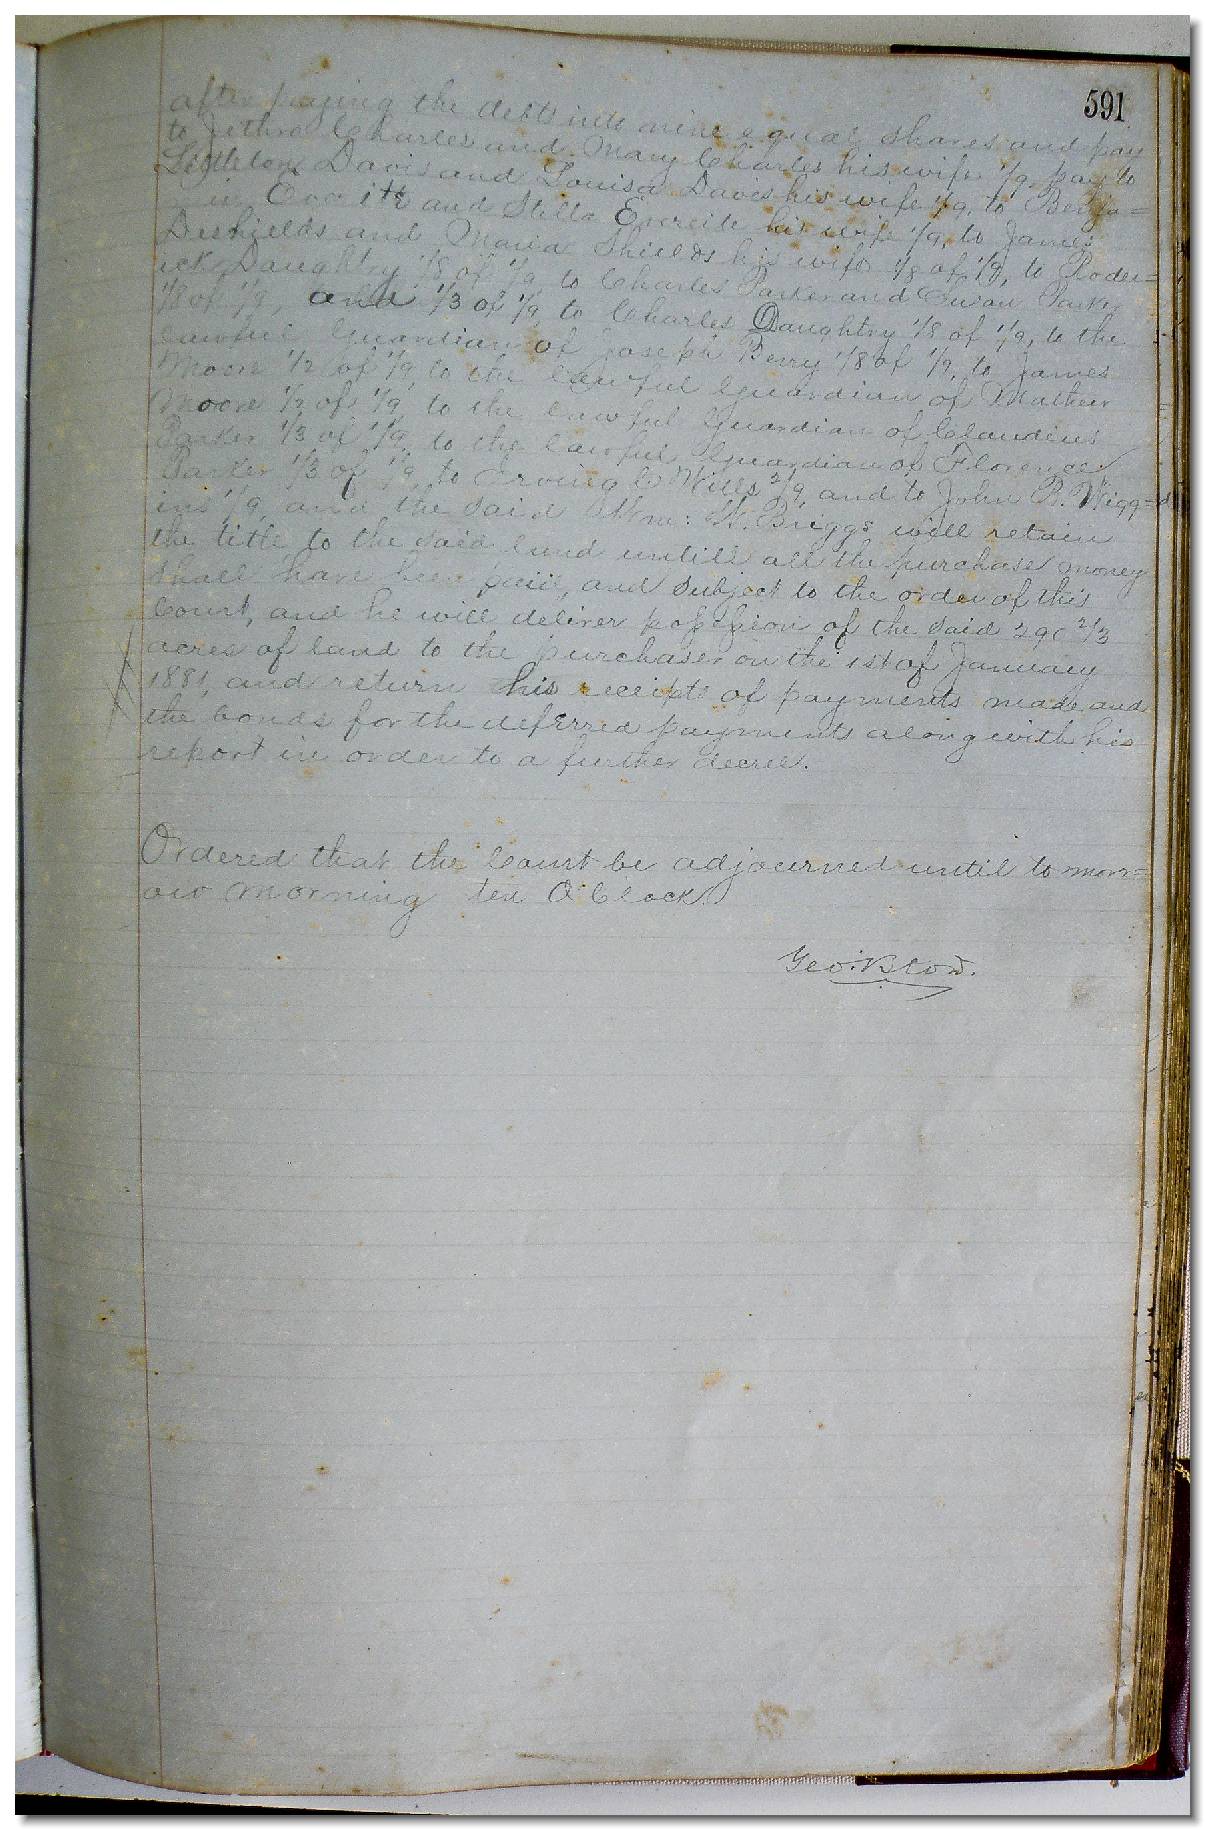 591
after paying the debts into nine equal shares and pay
to Jethro Charles and Mary Charles his wife 1/9, pay to
Littleton Davis and Louisa Davis his wife 1/9, to Benja=
in and Stella his wife 1/9, to James
Deshields and Maria Shields his wife 1/8 of 1/9, to Roder=
ick Daughtry 1/8 of 1/9, to Charles Parker and Susan Parker
1/8 of 1/9, and 1/3 of 1/9, to Charles Daughtry 1/8 of 1/9, to the
lawful Guardian of Joseph Berry 1/8 of 1/9, to James
Moore 1/2 of 1/9, to the lawful Guardian of Mathew
Moore 1/2 of 1/9, to the lawful Guardian of Claudius
Parker 1/3 of 1/9, to the lawful Guardian of Florence
Parker 1/3 of 1/9, to Irving C Wills 2/9, and to John B. Wigg=
ins 1/9, and the said Wm: H. Briggs will retain
the title to the said land untill all the purchase money
shall have been paid, and subject to the order of this
Court, and he will deliver possession of the said 290 2/3
acres of land to the purchaser on the 1st of January
1881, and return his receipts of payments made, and
the bonds for the deferred payments along with his
report in order to a further decree.
Ordered that the Court be adjourned until to morr=
ow morning ten O'Clock
Geo: Blow.